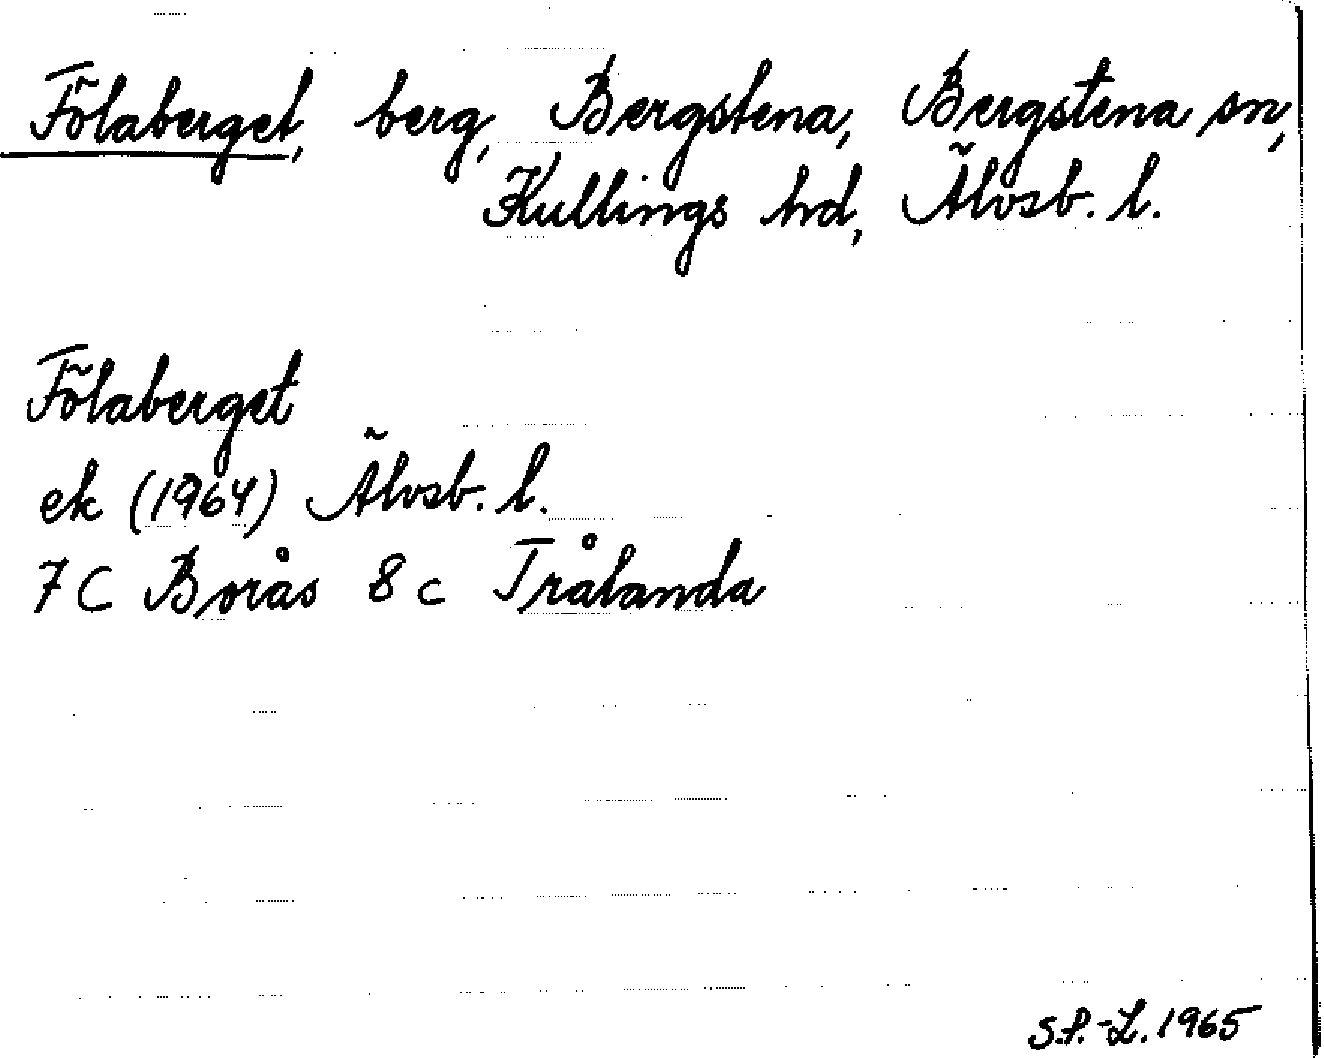 Fölaberget, berg, Bergstena, Bergstena sn,
Kullings hd, Älvsb. l.
Fölaberget
ek (1964) Älvsb. l.
7 C Borås 8 c Trålanda
S.P.-L. 1965